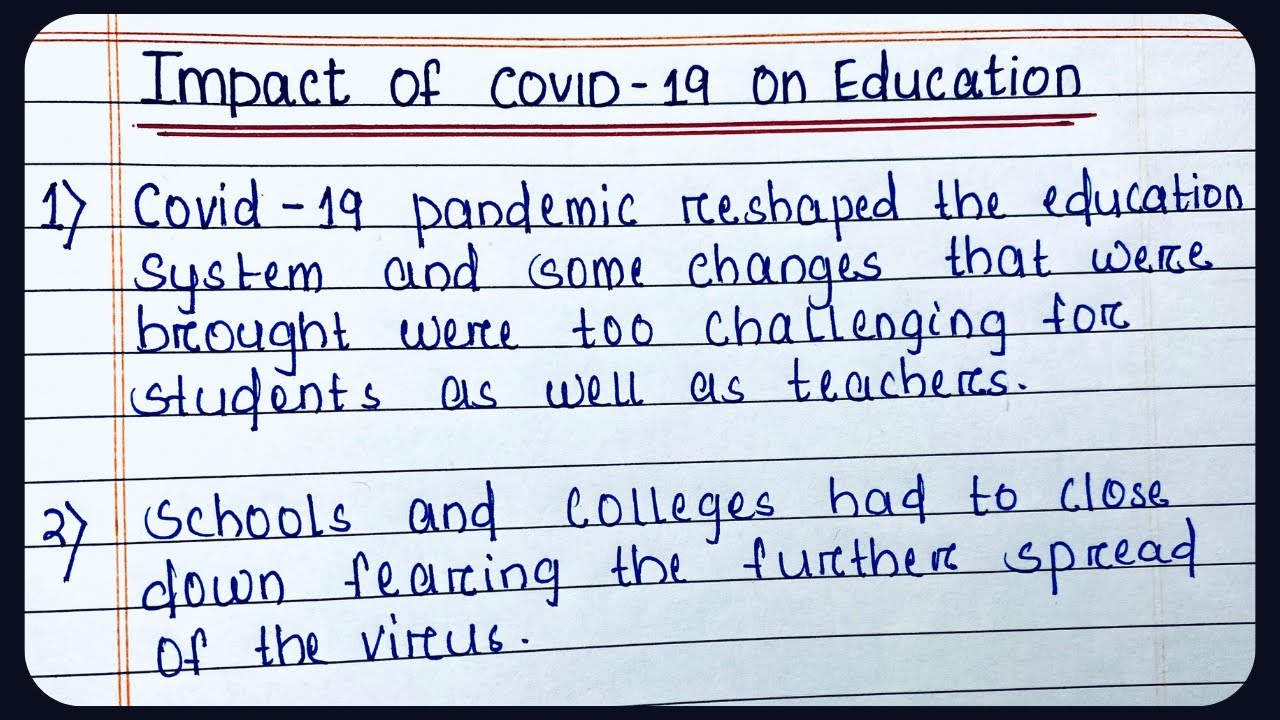 Impact of COVID-19 on Education
1) Covid-19 pandemic reshaped the education
system and some changes that were
brought were too challenging for
students as well as teachers.
2) Schools and colleges had to close
down fearing the further spread
of the virus.